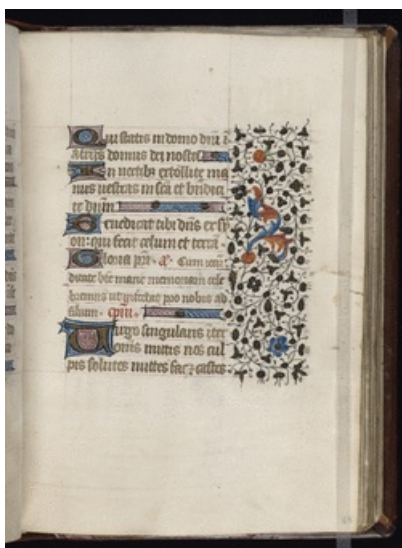 Qui statis in domo dni i
atrijs domus dei nostri
In noctibz extollite ma
nus uestras in scā et bndici
te dnm
Benedicat tibi dns ex sy
on: qui fecit celum et terrā
Gloria pri. Cum iocū
ditate bte marie memoriam cele
bremus ut ipsa pro nobis ad
filium.
Uirgo singularis īter
omīs mitis nos cul
pis solutos mittes fac z castos